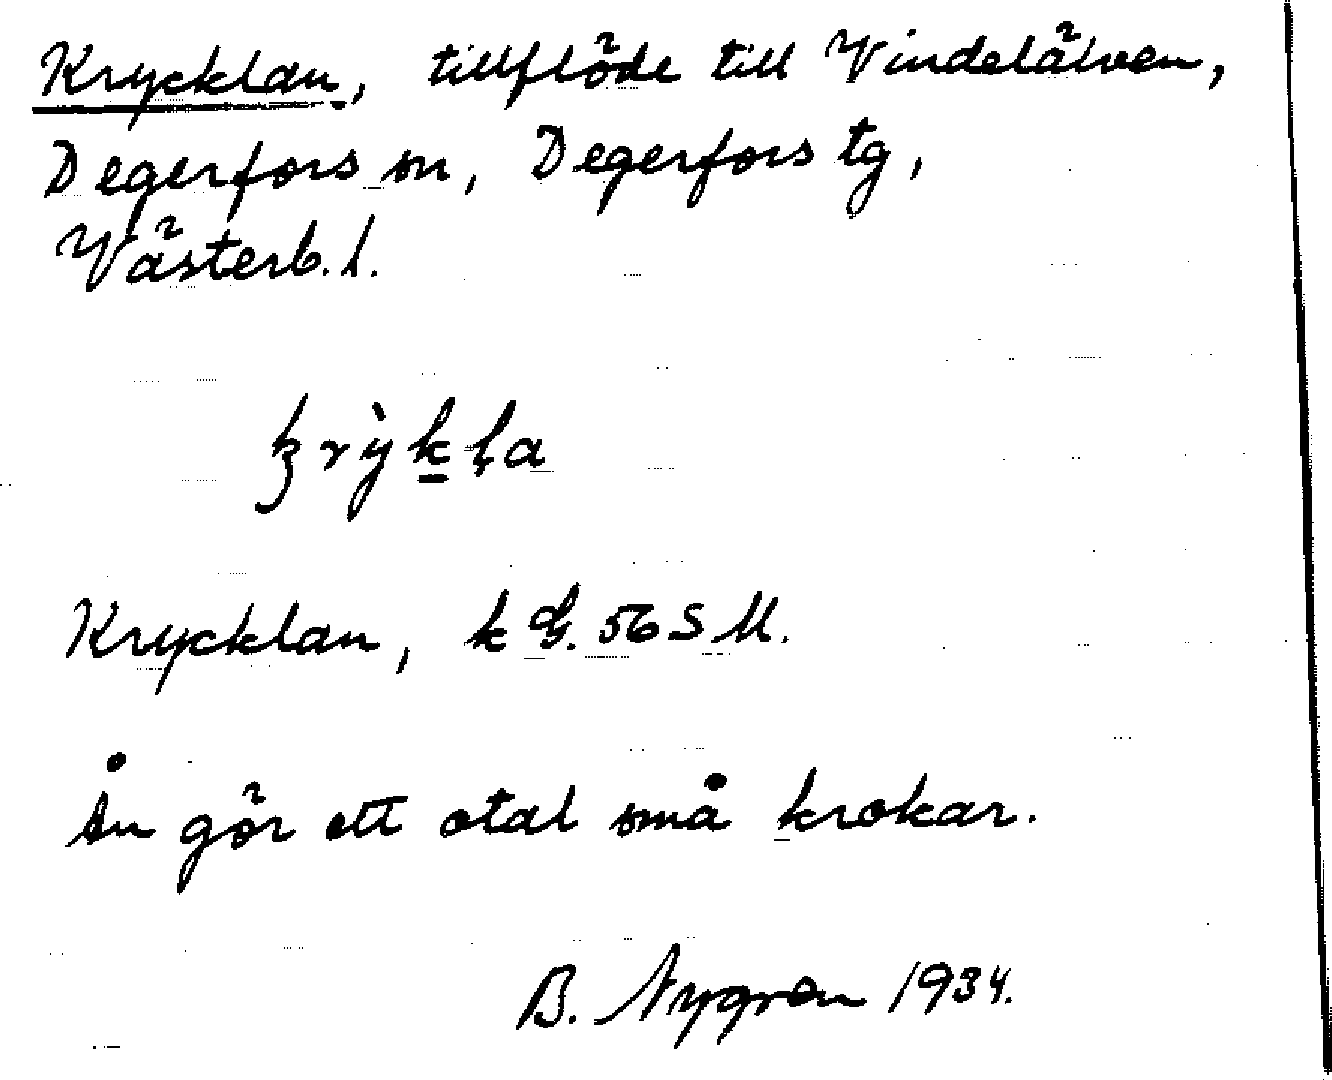 Krycklan, tillflöde till Vindelälven,
Degerfors sn, Degerfors tg,
Västerb. l.
Krycklan, k G. 56 S M.
Ån gör ett otal små krokar.
B. Nygren 1934.